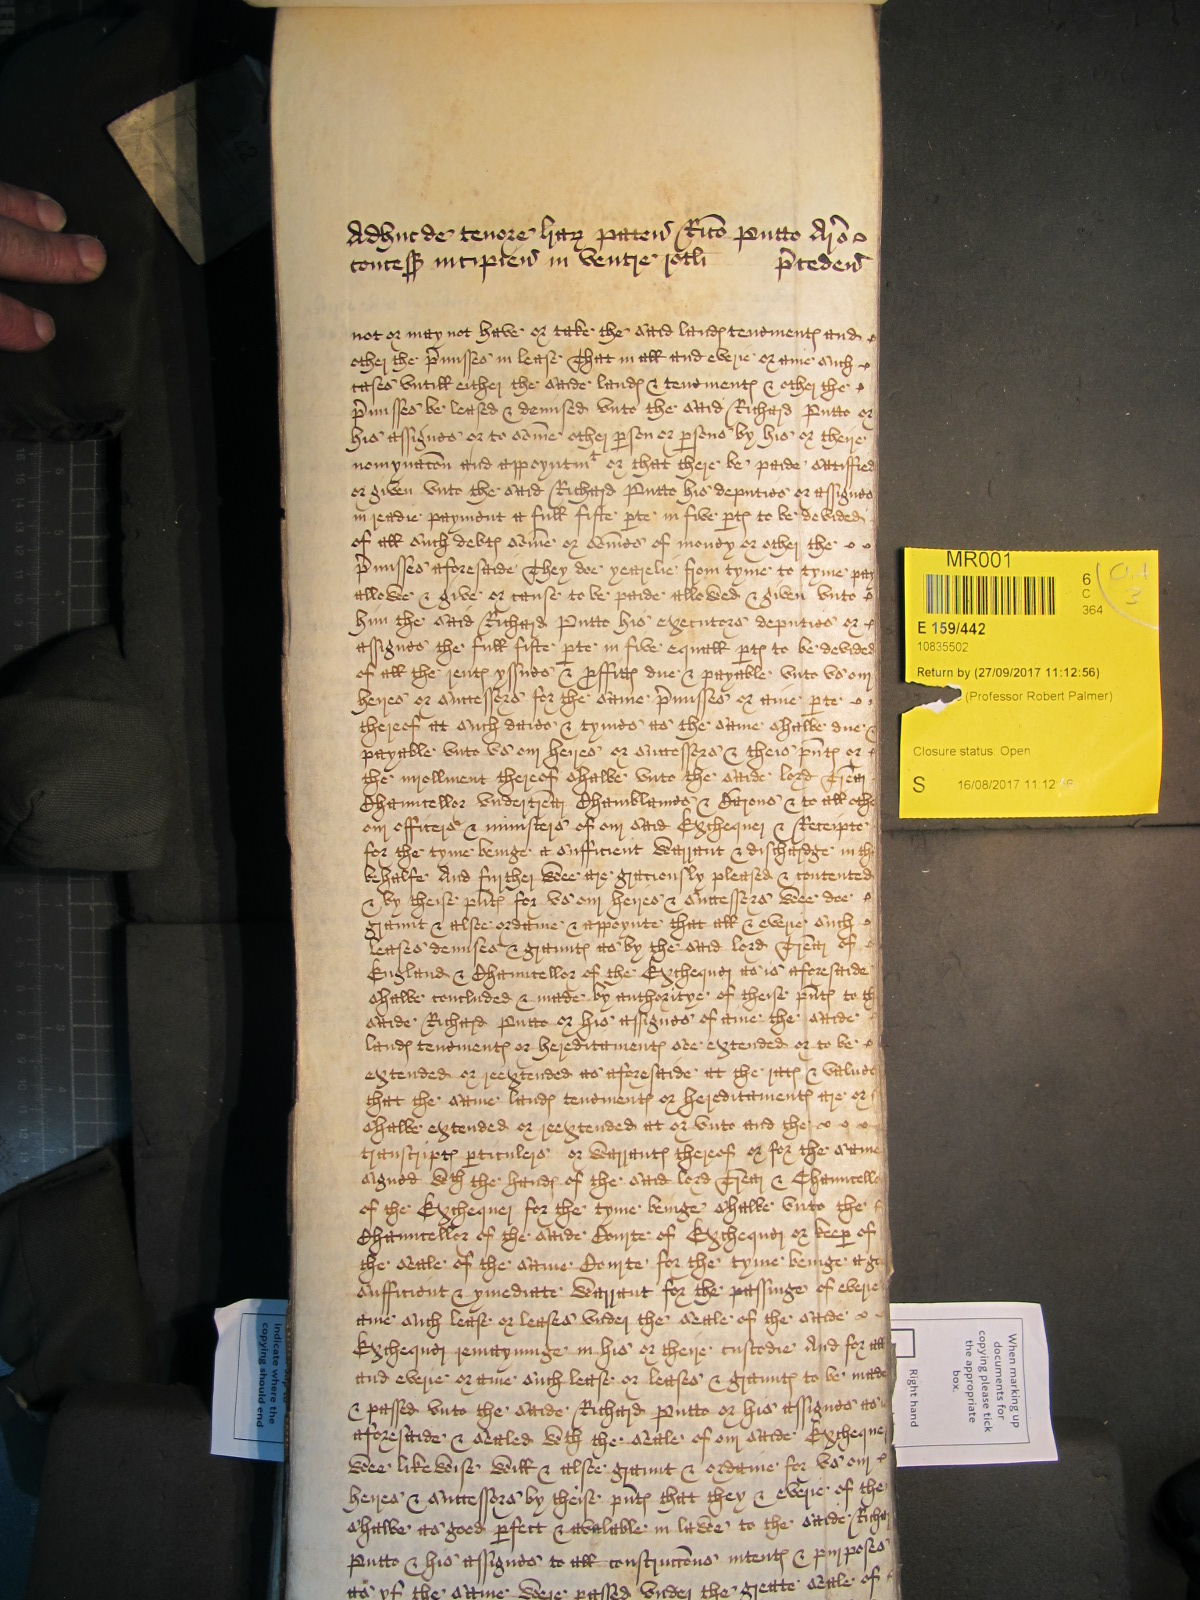 Adhuc de tenore lrarz paten Rico Putto Aro
concess incipien in ventre rotli p̃ceden
not or may not have or take the said landℯ tenementℯ and
other the p̃misses in lease That in all and everie or anie such
cases vntill either the saide landℯ & tenementℯ & other the
p̃misses be leased & demised vnto the said Richard Putto or
his assignes or to some other p̱son or p̱sons by his or theire
nomynacõn and appoyntmt or that there be paide satisfied
or given vnto the said Richard Putto his deputies or assignes
in readie payment a full fifte p̱te in five p̱tℯ to be devided
of all such debtℯ some or somes of money or other the
p̃misses aforesaide They doe yearelie from tyme to tyme pay
allowe & give or cause to be paide allowed & given vnto
him the said Richard Putto his executors deputies or
assignes the full fifte p̱te in five equall p̱tℯ to be devided
of all the rentℯ yssues & p̱ffittℯ due & payable vnto vs our
heires or successors for the same p̃misses or anie p̱te
thereof at such daies & tymes as the same shalbe due &
payable vnto vs our heires or successors & theis p̃ntℯ or
the inrollment thereof shalbe vnto the saide lord Trẽar
Chauncellor vndertrẽar Chamblaines & Barons & to all othe
our officers & ministers of our said Exchequer & Receipte
for the tyme beinge a sufficient warrant & dischardge in th
behalfe And further wee are graciously pleased & contented
& by theise p̃ntℯ for vs our heires & successors wee doe
graunt & alsoe ordaine & appoynte that all & everie such
leases demises & grauntℯ as by the said lord Trẽar of
England & Chauncellor of the Exchequer as is aforesaide
shalbe concluded & made by authoritye of theise p̃ntℯ to th
saide Richard Putto or his assignes of anie the saide
landℯ tenementℯ or hereditamentℯ soe extended or to be
extended or reextended as aforesaide at the ratℯ & values
that the same landℯ tenementℯ or hereditamentℯ are or
shalbe extended or reextended at or vnto and the
transcriptℯ p̱ticulers or warrantℯ thereof or for the same
signed wth the handℯ of the said lord Trẽar & Chauncello
of the Exchequer for the tyme beinge shalbe vnto the
Chauncellor of the saide Courte of Exchequer or keep̱ of
the seale of the same Courte for the tyme beinge a go
sufficient & ymediate warrant for the passinge of everie
anie such lease or leases vnder the seale of the saide
Exchequer remayninge in his or theire custodie And for all
and everie or anie such lease or leases & grauntℯ to be made
& passed vnto the saide Richard Putto or his assignes as
aforesaide & sealed wth the seale of our saide Exchequer
wee likewise will & alsoe graunt & ordaine for vs our
heires & successors by theise p̃ntℯ that they & everie of the
shalbe as good p̱fect & avalable in lawe to the saide Richar
Putto & his assignes to all construccõns intentℯ & purposes
as yf the same were passed vnder the greate seale of
MR001
6
C
364
E 159/442
10835502
Return by (27/09/2017 11:12:56)
(Professor Robert Palmer)
Closure status Open
S 16/08/2017 11:12
indicate where the
copying should end
When marking up
documents for
copying please tick
the appropriate
box.
Right hand